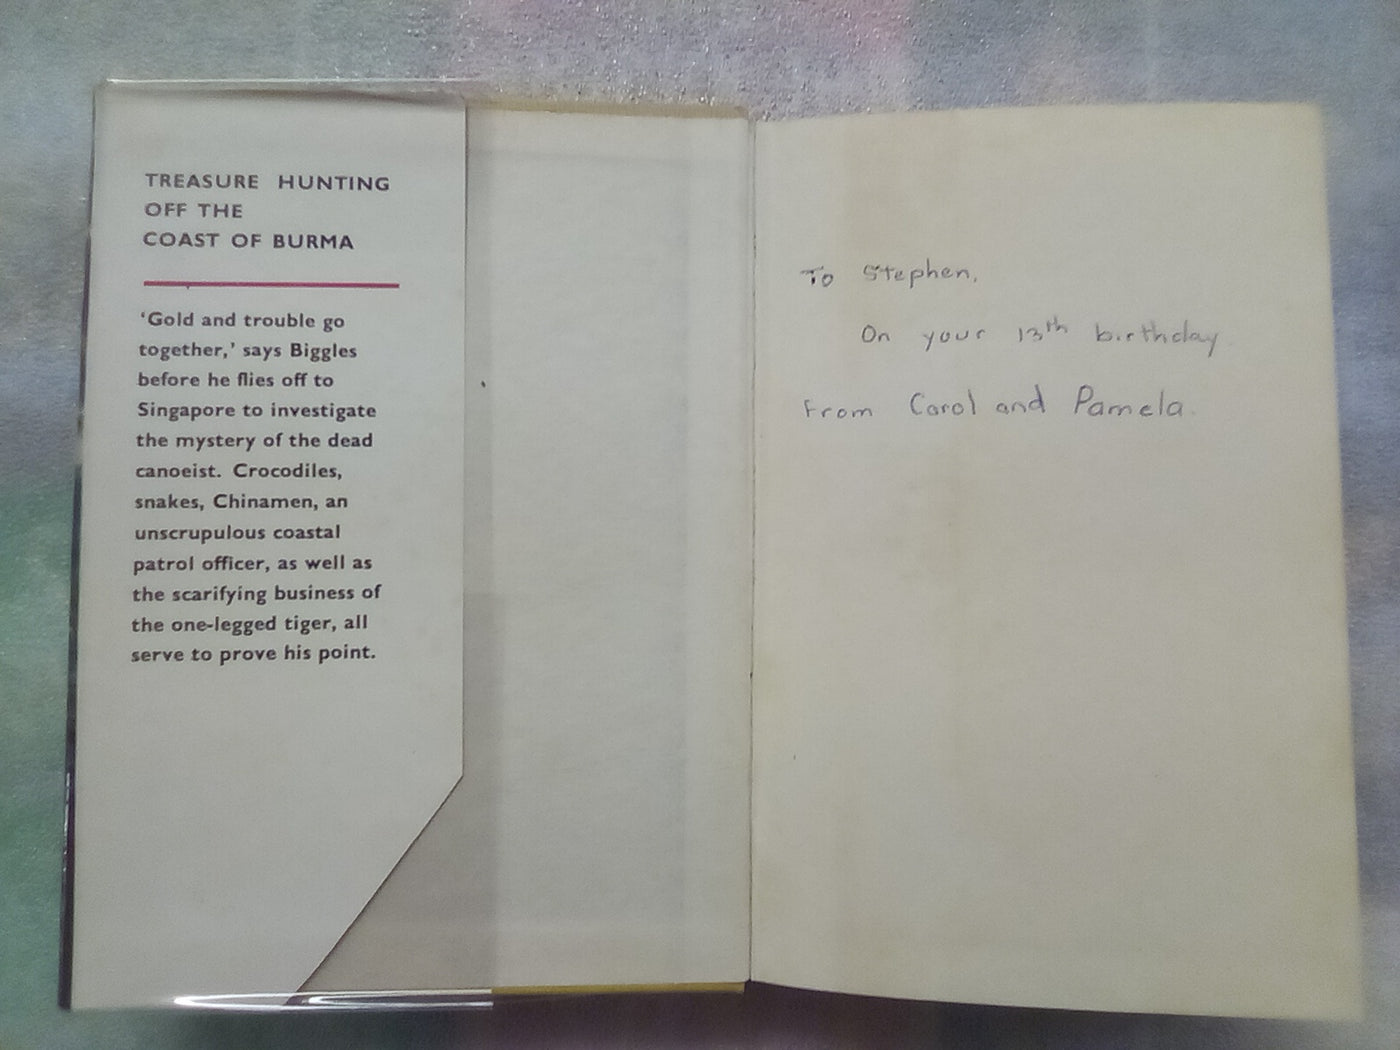 TREASURE HUNTING
OFF THE
COAST OF BURMA
‘Gold and trouble go
together,’ says Biggles
before he flies off to
Singapore to investigate
the mystery of the dead
canoeist. Crocodiles,
snakes, Chinamen, an
unscrupulous coastal
patrol officer, as well as
the scarifying business of
the one-legged tiger, all
serve to prove his point.
To Stephen,
On your 13th birthday
From Carol and Pamela.